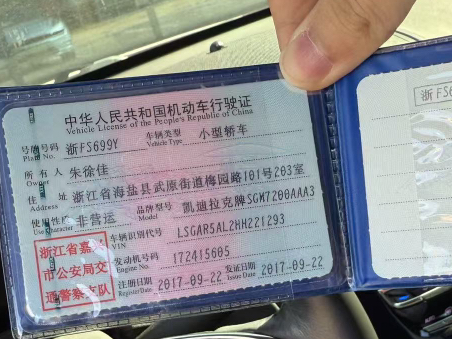 中华人民共和国机动车行驶证
Vehicle License of the People's Republic of China
号牌号码 浙FS699Y 车辆类型 小型轿车
Plate No. Vehicle Type
所有人 朱徐佳
Owner
住址 浙江省海盐县武原街道梅园路101号203室
Address
使用性质 非营运 品牌型号 凯迪拉克牌SGM7200AAA3
Use Character Model
车辆识别代号 LSGAR5AL2HH221293
VIN
发动机号码 172415605
Engine No.
注册日期 2017-09-22 发证日期 2017-09-22
Register Date Issue Date
浙江省嘉兴
市公安局交
通警察支队
浙FS